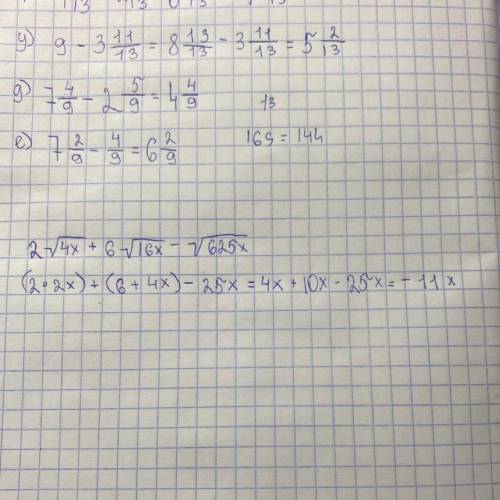 у) 9 - 3 11/13 = 8 13/13 - 3 11/13 = 5 2/13
д) 7 4/9 - 2 5/9 = 4 4/9
13
е) 7 2/9 - 4/9 = 6 2/9
169 = 144
2√4x + 6√16x - √625x
(2·2x) + (6 + 4x) - 25x = 4x + 10x - 25x = - 11x